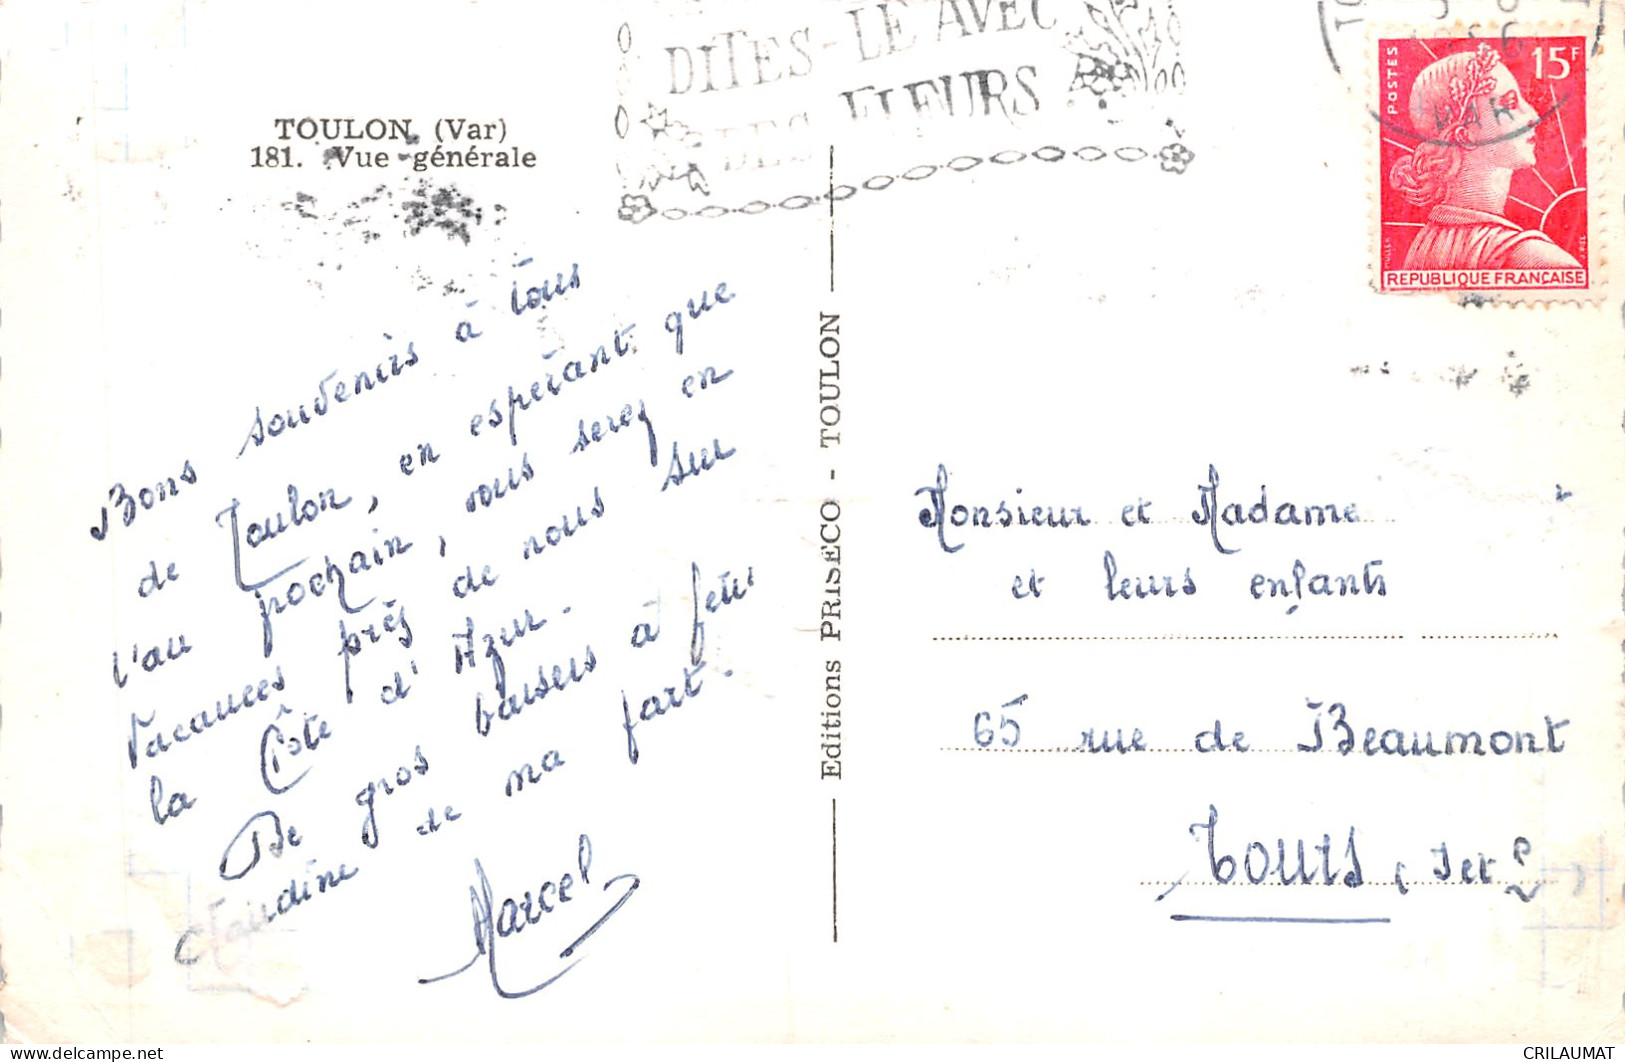 TOULON (Var)
181. Vue générale
DITES-LE AVEC
DES FLEURS
VAR
POSTES
15F
MULLER
REPUBLIQUE FRANÇAISE
Bons souvenirs à tous
de Toulon, en espérant que
l'an prochain, vous serez en
vacances près de nous sur
la Côte d'Azur.
De gros baisers à
Claudine de ma part.
Marcel
Editions PRISECO - TOULON
Monsieur et Madame
et leurs enfants
65 rue de Beaumont
Tours (I et L)
CRILAUMAT